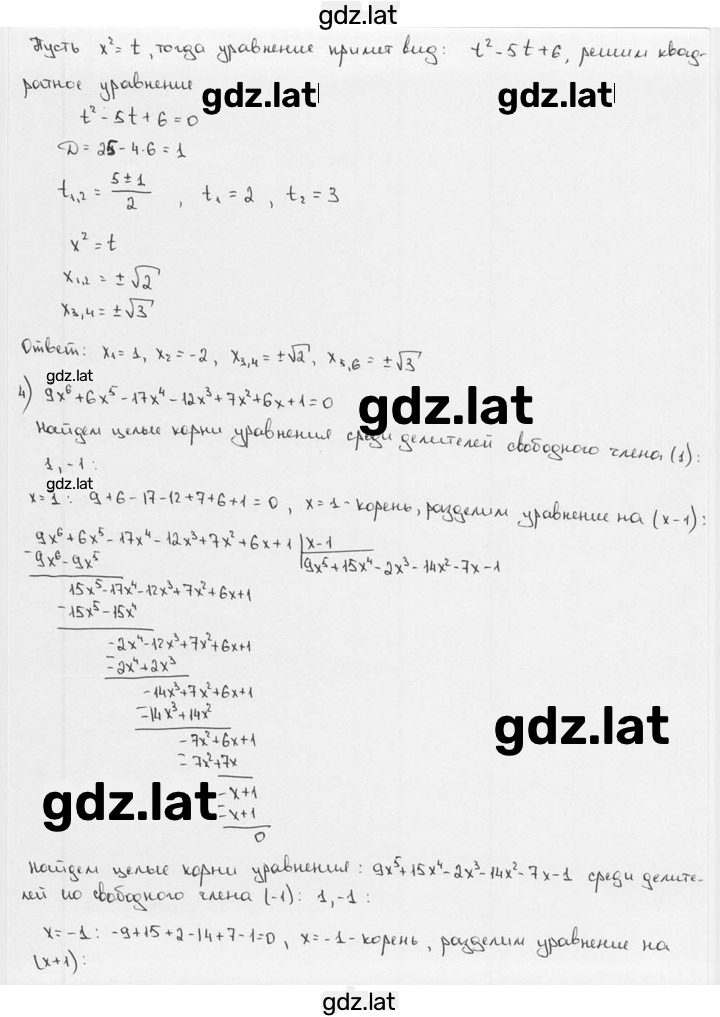 gdz.lat
Пусть x² = t, тогда уравнение примет вид: t² - 5t + 6, решим квад-
ратное уравнение
gdz.lat gdz.lat
t² - 5t + 6 = 0
D = 25 - 4·6 = 1
t₁,₂ = (5 ± 1)/2 , t₁ = 2 , t₂ = 3
x² = t
x₁,₂ = ±√2
x₃,₄ = ±√3
Ответ: x₁ = 1, x₂ = -2, x₃,₄ = ±√2, x₅,₆ = ±√3
gdz.lat
4) 9x⁶ + 6x⁵ - 17x⁴ - 12x³ + 7x² + 6x + 1 = 0
gdz.lat
Найдем целые корни уравнения среди делителей свободного члена (1):
1, -1 :
x = 1 : 9 + 6 - 17 - 12 + 7 + 6 + 1 = 0 , x = 1 - корень, разделим уравнение на (x-1):
9x⁶ + 6x⁵ - 17x⁴ - 12x³ + 7x² + 6x + 1 | x - 1
- 9x⁶ - 9x⁵ 9x⁵ + 15x⁴ - 2x³ - 14x² - 7x - 1
15x⁵ - 17x⁴ - 12x³ + 7x² + 6x + 1
- 15x⁵ - 15x⁴
-2x⁴ - 12x³ + 7x² + 6x + 1
- -2x⁴ + 2x³
-14x³ + 7x² + 6x + 1
- -14x³ + 14x²
gdz.lat
-7x² + 6x + 1
- 7x² + 7x
gdz.lat
-x + 1
- -x + 1
0
Найдем целые корни уравнения : 9x⁵ + 15x⁴ - 2x³ - 14x² - 7x - 1 среди делите-
лей но свободного члена (-1) : 1, -1 :
x = -1 : -9 + 15 + 2 - 14 + 7 - 1 = 0 , x = -1 - корень, разделим уравнение на
(x+1) :
gdz.lat